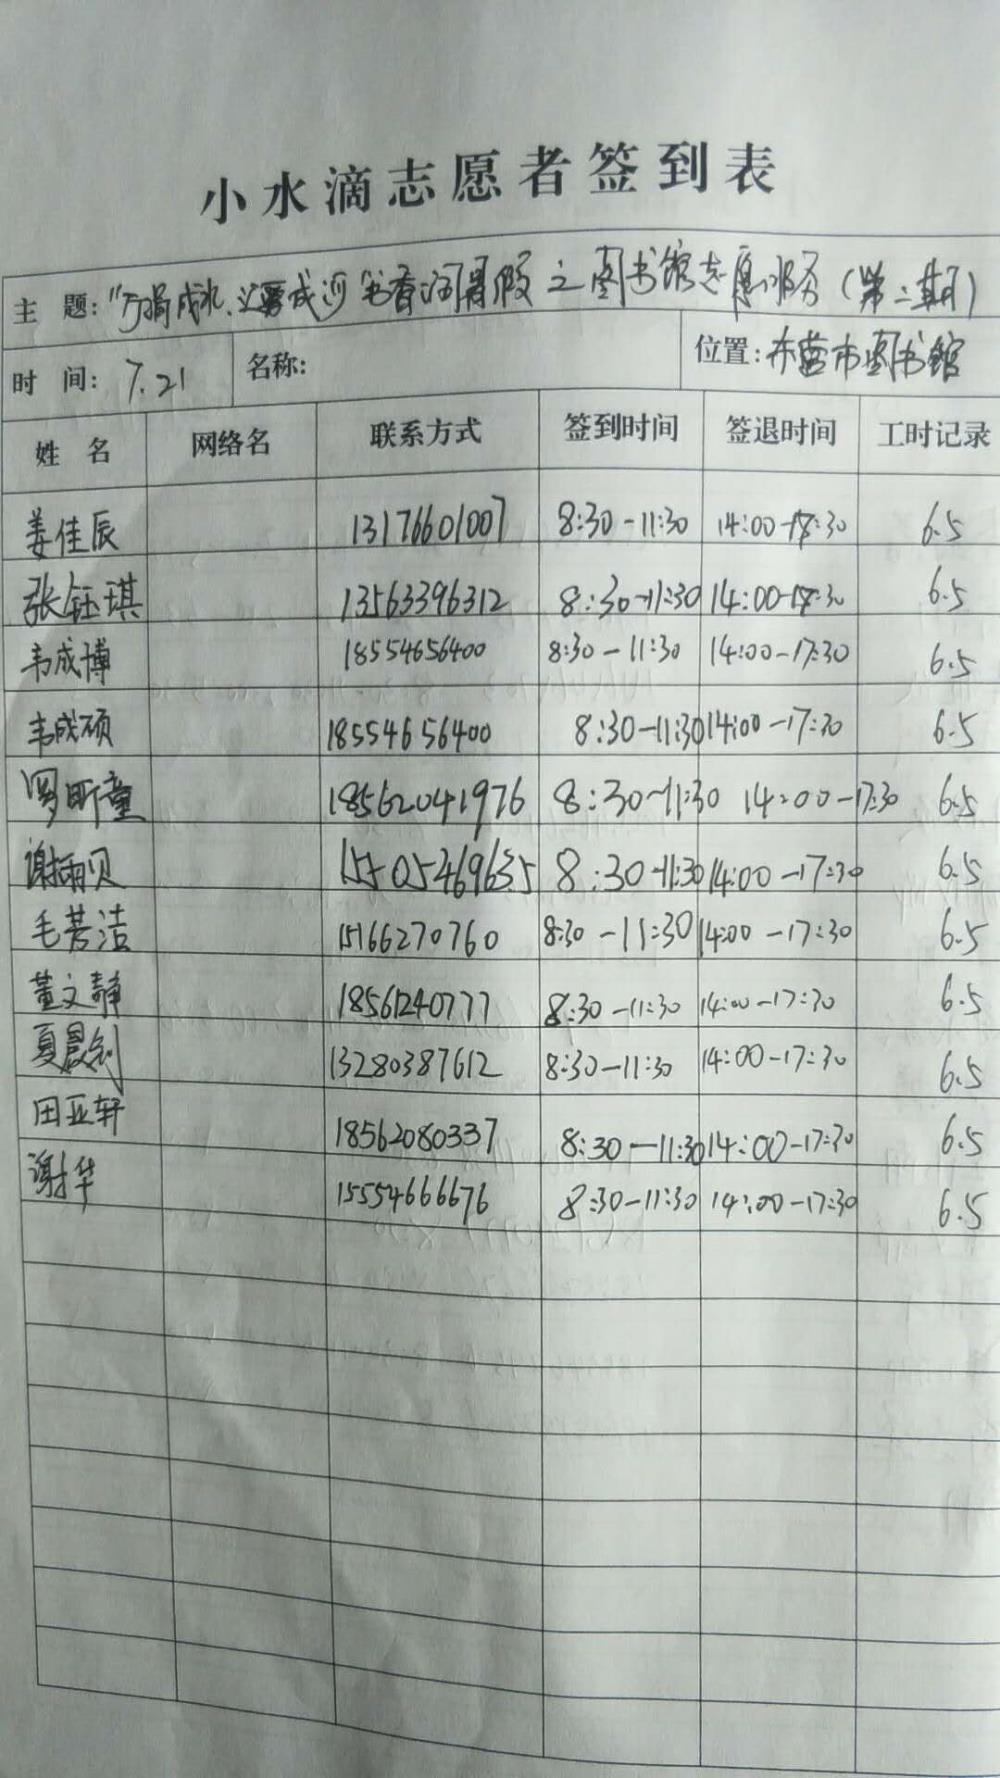 小水滴志愿者签到表
主 题："万涓成水、汇雾成河 书香润暑假 之图书馆志愿服务（第二期）
时 间：7.21 名称： 位置：东营市图书馆
姓 名 网络名 联系方式 签到时间 签退时间 工时记录
姜佳辰 13176601007 8:30-11:30 14:00-17:30 6.5
张钰琪 13563396312 8:30-11:30 14:00-17:30 6.5
韦成博 18554656400 8:30-11:30 14:00-17:30 6.5
韦成硕 18554656400 8:30-11:30 14:00-17:30 6.5
罗昕童 18562041976 8:30-11:30 14:00-17:30 6.5
谢雨贝 15505469635 8:30-11:30 14:00-17:30 6.5
毛芳洁 15166270760 8:30-11:30 14:00-17:30 6.5
董文静 18561240777 8:30-11:30 14:00-17:30 6.5
夏晨剑 13280387612 8:30-11:30 14:00-17:30 6.5
田亚轩 18562080337 8:30-11:30 14:00-17:30 6.5
谢华 15554666676 8:30-11:30 14:00-17:30 6.5